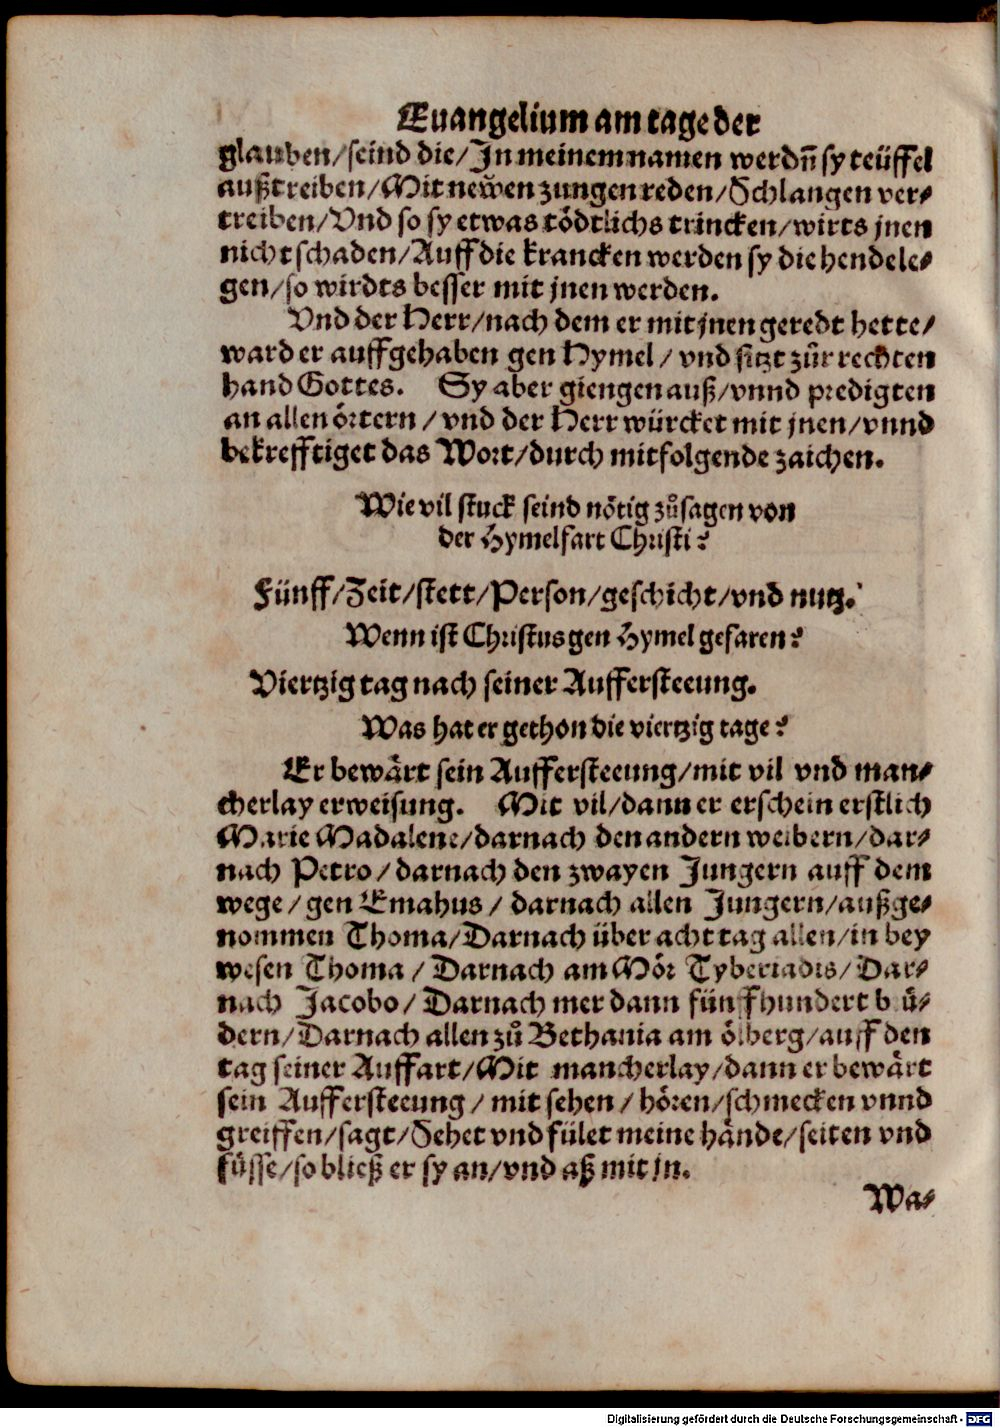 Euangelium am tage der
glauben/seind die/In meinem namen werdn̄ sy teüffel
außtreiben/Mit newen zungen reden/Schlangen ver⸗
treiben/Vnd so sy etwas tödtlichs trincken/wirts jnen
nicht schaden/Auff die krancken werden sy die hende le⸗
gen/so wirdts besser mit jnen werden.
Vnd der Herr/nach dem er mit jnen geredt hette/
ward er auffgehaben gen Hymel/vnd sitzt zůr rechten
hand Gottes. Sy aber giengen auß/vnnd predigten
an allen örtern/vnd der Herr würcket mit jnen/vnnd
bekrefftiget das Wort/durch mitfolgende zaichen.
Wie vil stuck seind nötig zůsagen von
der Hymelfart Christi?
Fünff/Zeit/stett/Person/geschicht/vnd nutz.
Wenn ist Christus gen Hymel gefaren?
Viertzig tag nach seiner Auffersteeung.
Was hat er gethon die viertzig tage?
Er bewärt sein Auffersteeung/mit vil vnd man⸗
cherlay erweisung. Mit vil/dann er erschein erstlich
Marie Madalene/darnach den andern weibern/dar⸗
nach Petro/darnach den zwayen Jungern auff dem
wege/gen Emahus/darnach allen Jungern/außge⸗
nommen Thoma/Darnach über acht tag allen/in bey
wesen Thoma/Darnach am Mör Tyberiadis/Dar⸗
nach Jacobo/Darnach mer dann fünffhundert brü⸗
dern/Darnach allen zů Bethania am ölberg/auff den
tag seiner Auffart/Mit mancherlay/dann er bewärt
sein Auffersteeung/mit sehen/hören/schmecken vnnd
greiffen/sagt/Sehet vnd fület meine hände/seiten vnd
füsse/so bließ er sy an/vnd aß mit jn.
Wa⸗
Digitalisierung gefördert durch die Deutsche Forschungsgemeinschaft - DFG